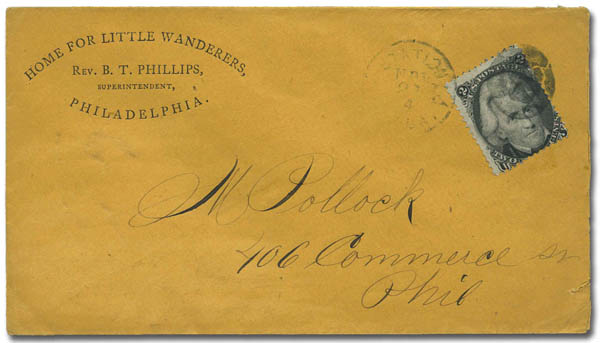 HOME FOR LITTLE WANDERERS,
REV. B. T. PHILLIPS,
SUPERINTENDENT,
PHILADELPHIA.
NOV
4
2
TWO
CENTS
M Pollock
406 Commerce St
Phil